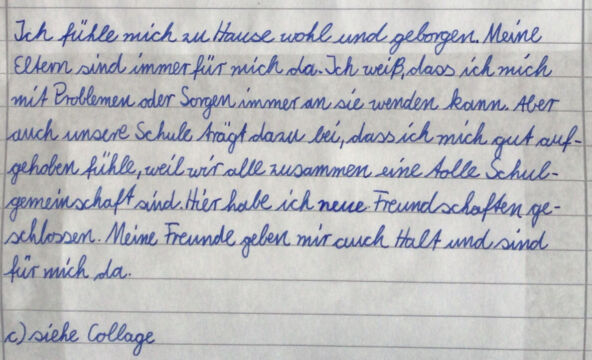 Ich fühle mich zu Hause wohl und geborgen. Meine
Eltern sind immer für mich da. Ich weiß, dass ich mich
mit Problemen oder Sorgen immer an sie wenden kann. Aber
auch unsere Schule trägt dazu bei, dass ich mich gut auf-
gehoben fühle, weil wir alle zusammen eine tolle Schul-
gemeinschaft sind. Hier habe ich neue Freundschaften ge-
schlossen. Meine Freunde geben mir auch Halt und sind
für mich da.
c) siehe Collage